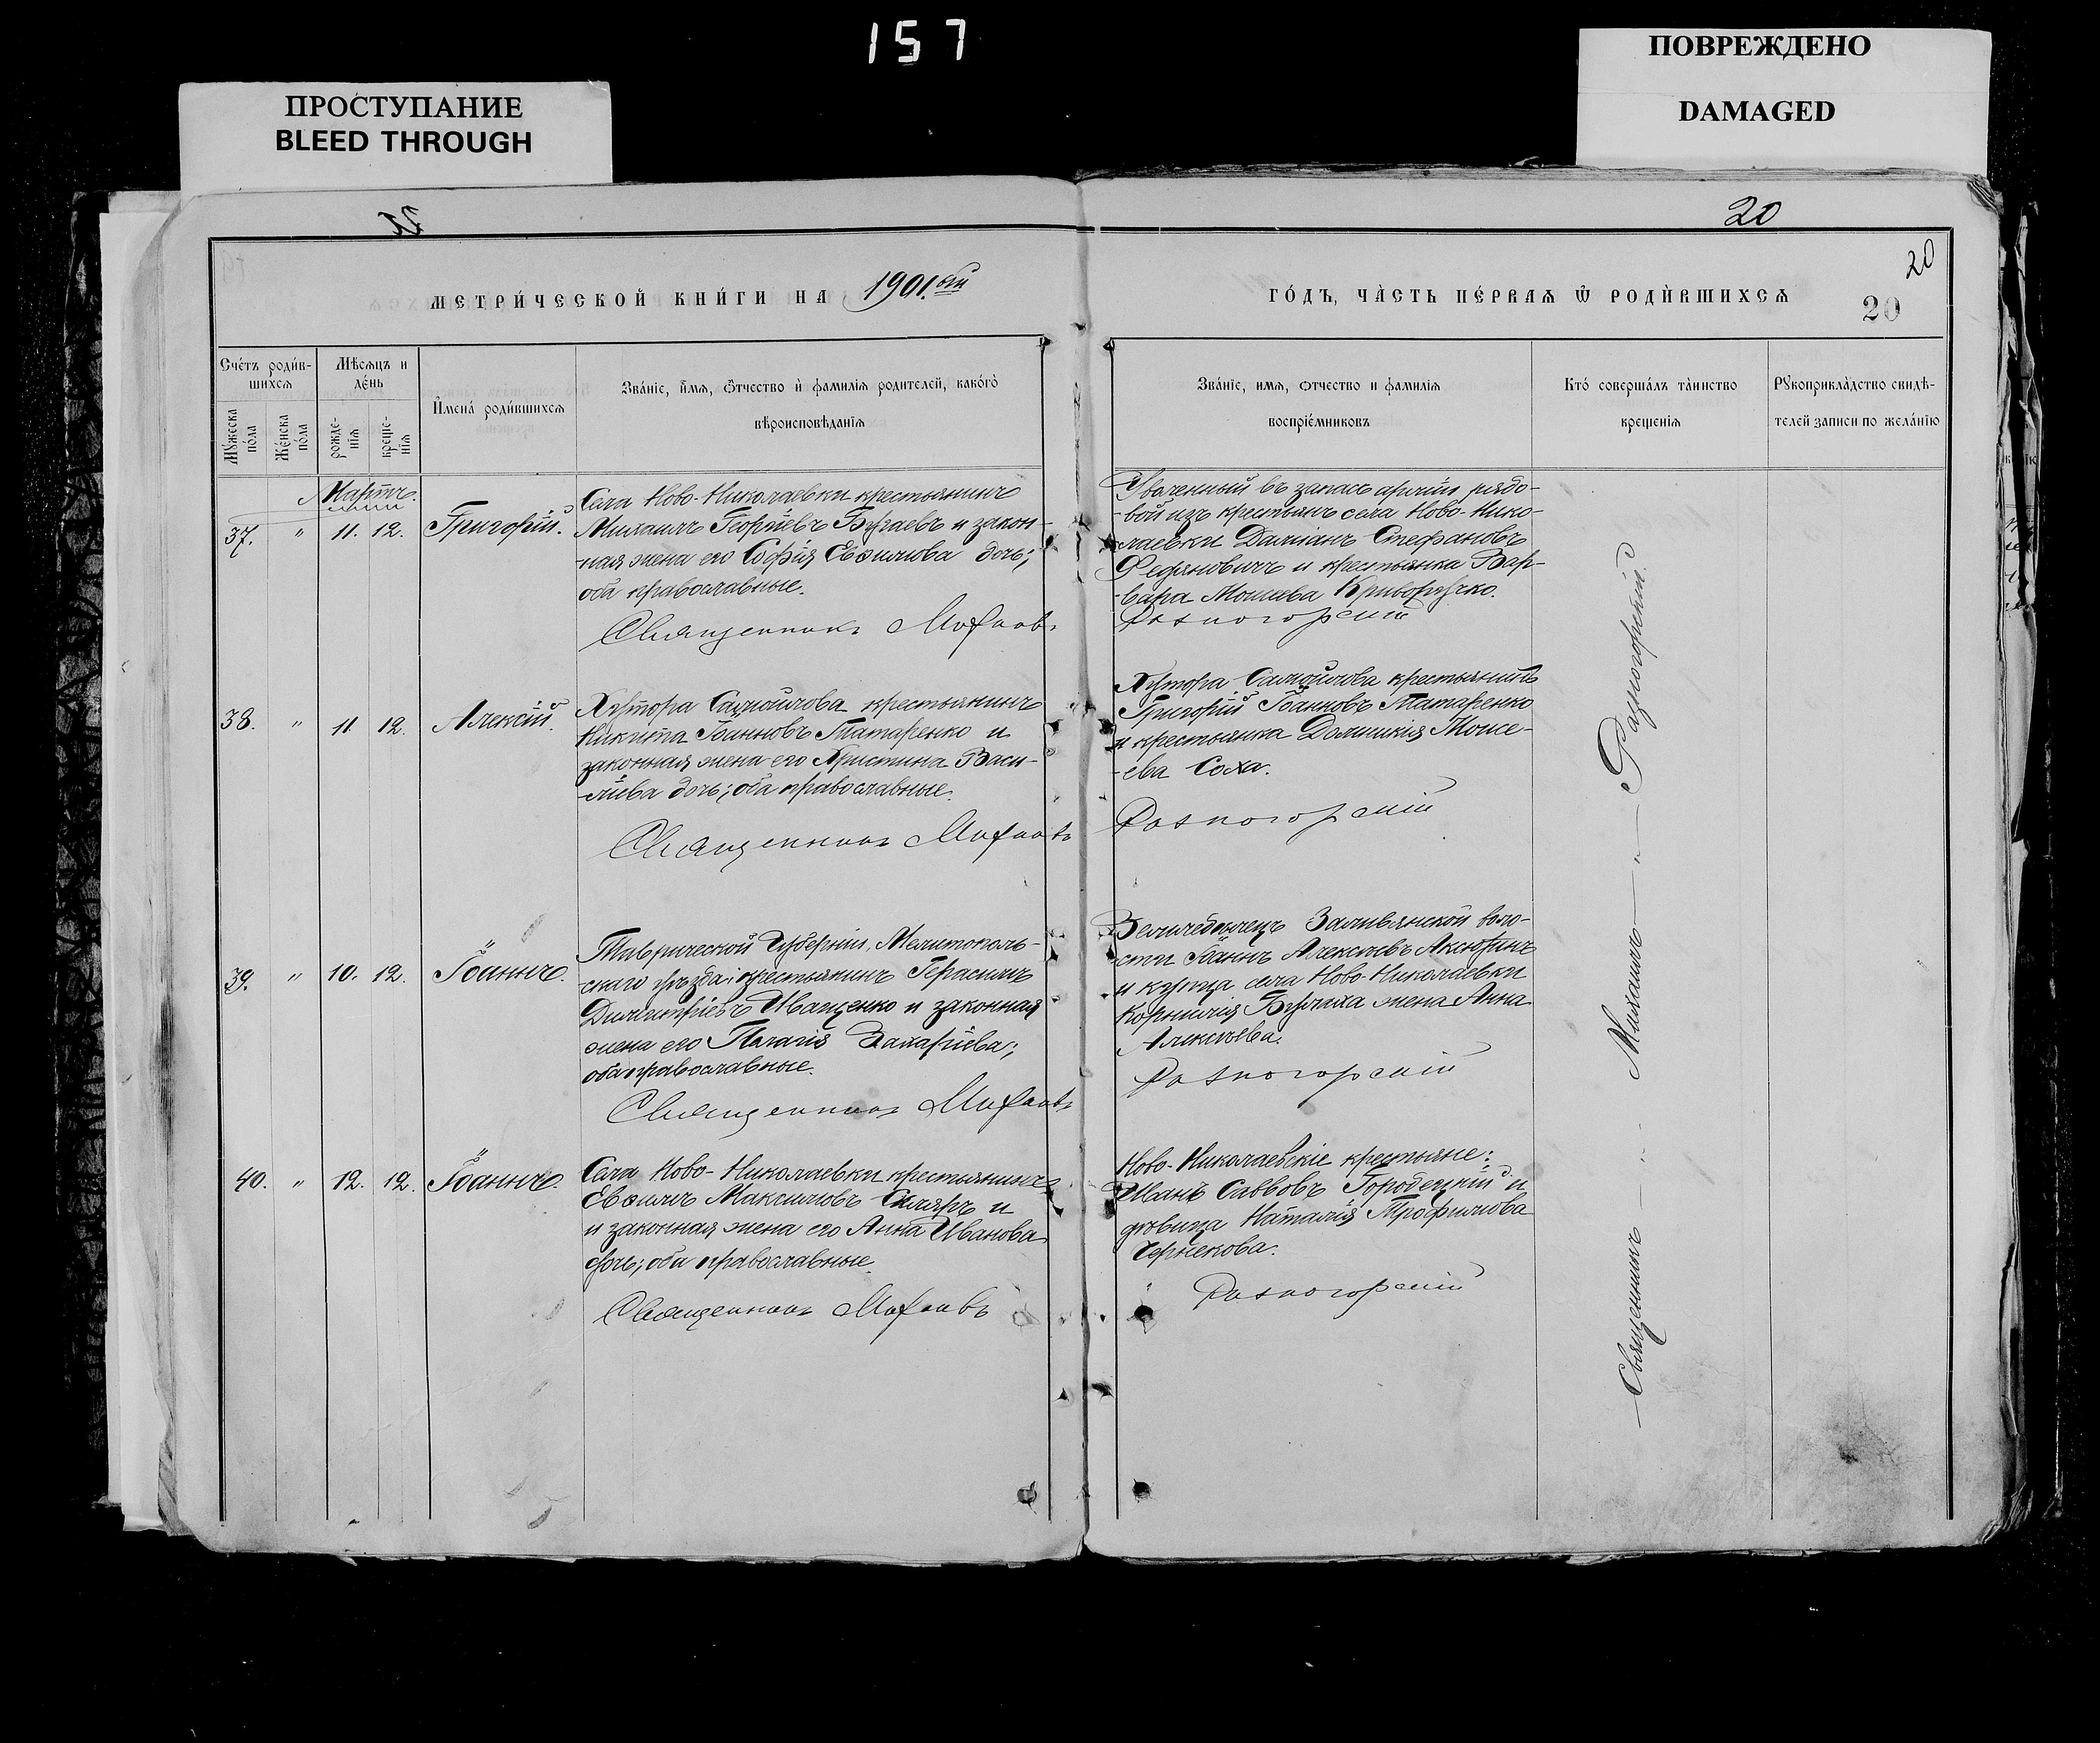 157
ПРОСТУПАНИЕ
BLEED THROUGH
ПОВРЕЖДЕНО
DAMAGED
20
20
20
МЕТРИ́ЧЕСКОЙ КНИ́ГИ НА 1901.ый
ГО́ДЪ, ЧА̀СТЬ ПЕ́РВАѦ Ѿ РОДИ́ВШИХСѦ
Счéтъ роди́в-
шихсѧ
Мѣ́сѧцъ и
дéнь
Мꙋ́жеска
пóла
Жéнска
пóла
рожде-
нїѧ
креще-
нїѧ
И҆мена̀ роди́вшихсѧ
Звáнїе, и҆́мѧ, ѻ҆́тчество и҆ фамилїѧ родителей, какóгѡ
вѣроисповѣданїѧ
Звáнїе, имѧ, ѻтчество и фамилїѧ
воспрїéмниковъ
Ктó совершáлъ тáинство
крещенїѧ
Рꙋкоприклáдство свидѣ-
телей записи по желáнїю
Мартъ.
37. " 11. 12. Григорій.
Села Ново-Николаевки крестьянинъ
Михаилъ Георгіевъ Бугаевъ и закон-
ная жена его Софія Евѳимова дочь;
оба православные.
Священникъ
Уволенный въ запасъ арміи рядо-
-вой изъ крестьянъ села Ново-Нико-
лаевки Даміанъ Стефановъ
и крестьянка Вар-
вара Моисеева Криворучко.
Разногорскій
38. " 11. 12. Алексій.
Хутора Самойлова крестьянинъ
Никита Іоанновъ Татаренко и
законная жена его Христина Васи-
ліева дочь; оба православные.
Священникъ
Хутора Самойлова крестьянинъ
Григорій Іоанновъ Татаренко
и крестьянка Домникія Моисе-
-ева Соха.
Разногорскій
39. " 10. 12. Іоаннъ.
Таврической Губерніи, Мелитополь-
скаго уѣзда, крестьянинъ Герасимъ
Димитріевъ Иващенко и законная
жена его Пелагія Захаріева;
оба православные.
Священникъ
воло-
сти Іоаннъ Алексѣевъ
и купца села Ново-Николаевки
Корнилія жена Анна
Алексѣева.
Разногорскій
40. " 12. 12. Іоаннъ.
Села Ново-Николаевки крестьянинъ
Евѳимъ Максимовъ Скляръ и
и законная жена его Анна Иванова
дочь; оба православные.
Священникъ
Ново-Николаевскіе крестьяне:
Иванъ Саввовъ Городецкій и
дѣвица Наталія Трофимова
Разногорскій
Священникъ Михаилъ Разногорскій